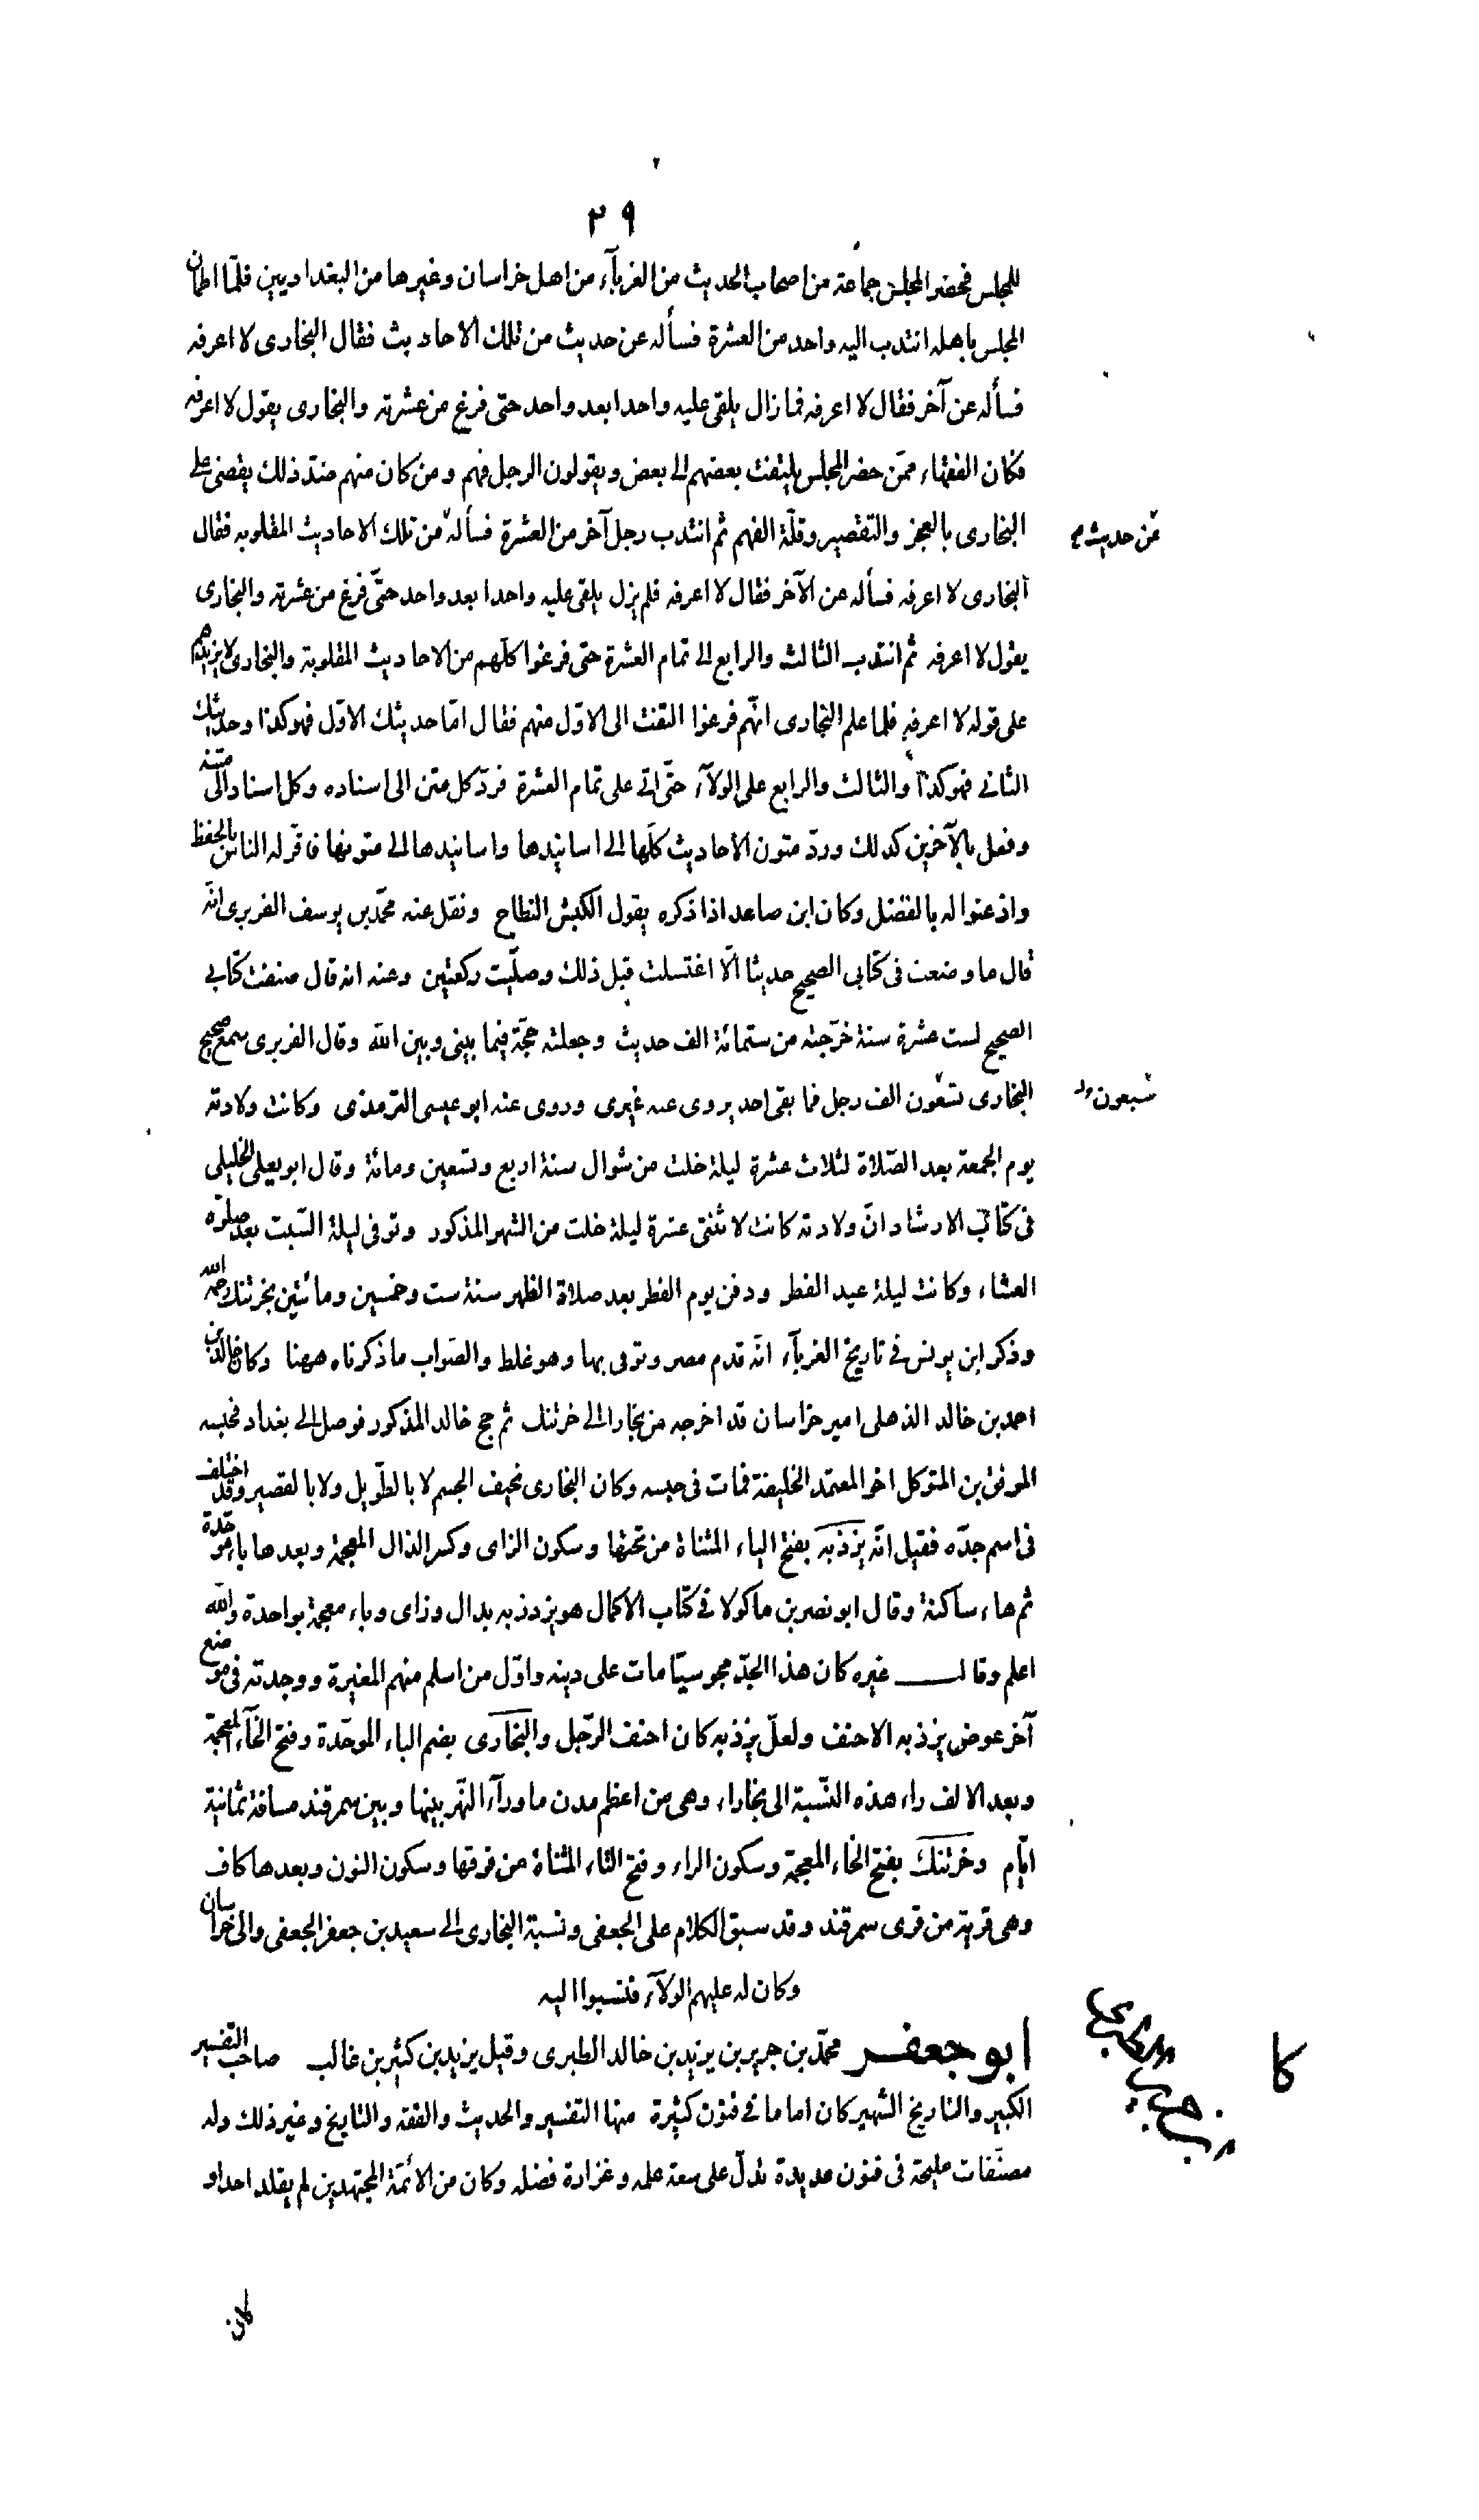 ٢٩
للمجلس فحضر المجلس جماعة من اصحاب الحديث من الغرباۤء من اهل خراسان وغيرها من البغداديين فلمّا اطمان
المجلس باهله انتدب اليه واحد من العشرة فسأله عن حديث من تلك الاحاديث فقال البخارى لا اعرفه
فسأله عن آخر فقال لا اعرفه فما زال يلقى عليه واحدا بعد واحد حتى فرغ من عشرته والبخارى يقول لا اعرفه
فكان الفقهاء ممّن حضر المجلس يلتفت بعضهم الى بعض ويقولون الرجل فهم ومن كان منهم ضدّ ذلك يقضى على
البخارى بالعجز والتقصير وقلّة الفهم ثم انتدب رجل آخر من العشرة فسأله من تلك الاحاديث المقلوبه فقال
عن حديث
البخارى لا اعرفه فسأله عن الآخر فقال لا اعرفه فلم يزل يلقى عليه واحدا بعد واحد حتّى فرغ من عشرته والبخارى
يقول لا اعرفه ثم انتدب الثالث والرابع الى تمام العشرة حتى فرغوا كلّهم من الاحاديث المقلوبة والبخارى لا يزيدهم
على قوله لا اعرفه فلما علم البخارى انّهم فرغوا التفت الى الاوّل منهم فقال امّا حديثك الاوّل فهو كذا وحديثك
الثانى فهو كذا والثالث والرابع على الولاۤء حتّى اتى على تمام العشرة فردّ كل متن الى اسناده وكل اسناد الى متنه
وفعل بالآخرين كذلك وردّ متون الأحاديث كلّها الى اسانيدها واسانيدها الى متونها فاقرّ له الناس بالحفظ
واذعنوا له بالفضل وكان ابن صاعد اذا ذكره يقول الكبش النطاح ونقل عنه محمّد بن يوسف الفربرى انّه
قال ما وضعت فى كتابى الصحيح حديثا الّا اغتسلت قبل ذلك وصلّيت ركعتين وعنه انه قال صنفت كتابى
الصحيح لست عشرة سنة خرّجته من ستمائة الف حديث وجعلته حجّة فيما بينى وبين الله وقال الفربرى سمع صحيح
البخارى تسعون الف رجل فما بقى احد يروى عنه غيرى وروى عنه ابو عيسى الترمذى وكانت ولادته
سبعون
يوم الجمعة بعد الصّلاة لثلاث عشرة ليلة خلت من شوال سنة اربع وتسعين ومائة وقال ابو يعلى الخليلى
فى كتاب الارشاد انّ ولادته كانت لاثنتى عشرة ليلة خلت من الشهر المذكور وتوفى ليلة السّبت بعد صلوة
العشاء وكانت ليلة عيد الفطر ودفن يوم الفطر بعد صلاة الظهر سنة ست وخمسين ومائتين بخرتنك رحمه الله
وذكر ابن يونس فى تاريخ الغرباۤء انّه قدم مصر وتوفى بها وهو غلط والصّواب ما ذكرناه ههنا وكان خالد بن
احمد بن خالد الذهلى امير خراسان قد اخرجه من بخارا الى خرتنك ثم حج خالد المذكور فوصل الى بغداد فحبسه
الموفق بن المتوكل اخو المعتمد الخليفة فمات فى حبسه وكان البخارى نحيف الجسم لا بالطّويل ولا بالقصير وقد اختلف
فى اسم جدّه فقيل انّه يزذبه بفتح الياء المثناة من تحتها وسكون الزاى وكسر الذال المعجمة وبعدها باء موحّدة
ثم هاء ساكنة وقال ابو نصر بن ماكولا فى كتاب الاكمال هو يزدذبه بدال وزاى وباء معجمة بواحدة والله
اعلم وقال غيره كان هذا الجدّ مجوسيّا مات على دينه واوّل من اسلم منهم المغيرة ووجدته فى موضع
آخر عوض يزذبه الاحنف ولعلّ يزذبه كان احنف الرّجل والبخارى بضم الباء الموحّدة وفتح الخاۤء المعجمة
وبعد الالف راء هذه النّسبة الى بخاراء وهى من اعظم مدن ماوراۤء النّهر بينها وبين سمرقند مسافة ثمانية
ايّام وخرتنك بفتح الخاء المعجمة وسكون الراء وفتح التاء المثناة من فوقها وسكون النون وبعدها كاف
وهى قرية من قرى سمرقند وقد سبق الكلام على الجعفى ونسبة البخارى الى سعيد بن جعفر الجعفى والى خراسان
وكان له عليهم الولاۤء فنسبوا اليه
ابو جعفر محمّد بن جرير بن يزيد بن خالد الطبرى وقيل يزيد بن كثير بن غالب صاحب التفسير
الكبير والتاريخ الشهير كان اماما فى فنون كثيرة منها التفسير والحديث والفقه والتاريخ وغير ذلك وله
مصنّفات مليحة فى فنون عديدة تدلّ على سعة علمه وغزارة فضله وكان من الائمّة المجتهدين لم يقلد احدا و
كان